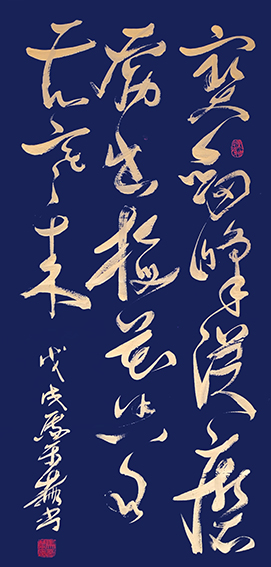 寶劍鋒從磨
砺出梅花香自
苦寒来
戊戌
书